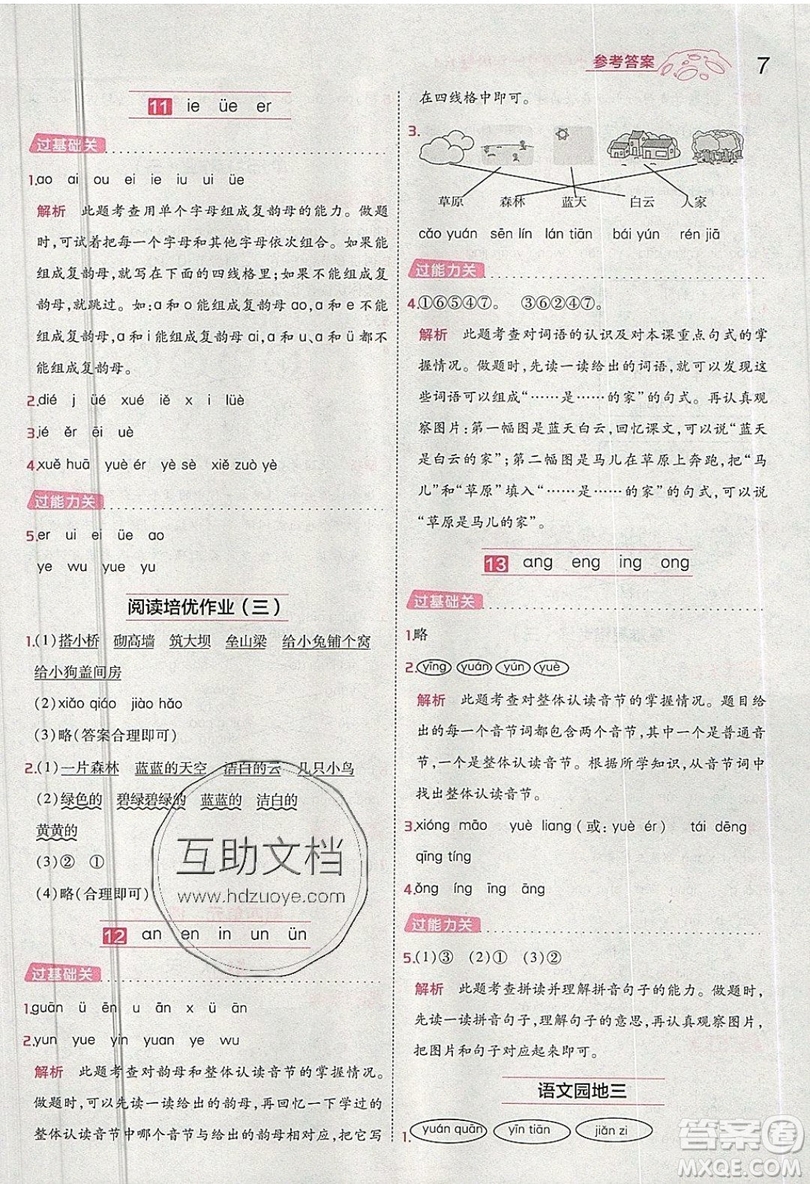 参考答案
7
11 ie üe er
过基础关
1.ao ai ou ei ie iu ui üe
解析 此题考查用单个字母组成复韵母的能力。做题
时,可试着把每个字母和其他字母依次组合。如果能
组成复韵母,就可以写在下面的四线格里;如果不能
组成复韵母,就跳过。如:a 和 o 能组成复韵母 ao,a 和 e 不能
组成复韵母,a 和 i 能组成复韵母 ai,a 和 ü 都不能
能组成复韵母。依次类推即可。
2.dié j üé xué iě x i lüè
3.iě ěr ēi üē
4.xuě huā yuè ér yè sè xiě zuò yè
过能力关
5.er ui ei üe ao
ye wu ye yu yue
阅读培优作业(三)
1.(1)搭小桥 砌高墙 筑大坝 垒山梁 给小兔铺个窝
给小狗盖间房
(2)xiǎo qiáo jiào hǎo
(3)略(答案合理即可)
2.(1)一片森林 蓝蓝的天空 洁白的云 几只小鸟
(2)绿色的 碧绿碧绿的 蓝蓝的 洁白的
黄黄的
(3)② ①
(4)略(合理即可)
12 an en in un ün
过基础关
1.guān ü ēn ā x ü ān
2.yun yue yin yuan ye
解析 此题考查对韵母和整体认读音节的掌握情况。
做题时,可以先读一读给出的韵母,再回忆一下学过的
整体认读音节中哪个音节与给出的韵母相对应,把它写
在四线格中即可。
3.
草原 森林 蓝天 白云 人家
cǎo yuán sēn lín lán tiān bái yún rén jiā
过能力关
4.①⑥⑤④⑦。 ③⑥②④⑦。
解析 此题考查对词语的认识及对本课重点句式的掌
握情况。做题时,先读一读给出的词语,就可以发现这
些词语可以组成“……是……的家”的句式。再认真观
察图片:第一幅图是蓝天白云,回忆课文,可以说“蓝天
是白云的家”;第二幅图是马儿在草原上奔跑,把“马
儿”和“草原”填入“……是……的家”的句式,可以说
“草原是马儿的家”。
13 ang eng ing ong
过基础关
1.略
2.yīng yuán yùn yuè
解析 此题考查对整体认读音节的掌握情况。题目给
出的每一个音节词都包含两个音节,一个是普通音
节,一个是整体认读音节。根据所学知识,从音节词中
找出整体认读音节。
3.xióng māo yuè liang(或:yuè ér) tái dēng
qīng tíng
4.ǒng íng īng āng
过能力关
5.(1)③ (2)① (3)②
解析 此题考查拼读并理解拼音句子的能力。做题时,
先读一读拼音句子,理解句子的意思,再认真观察图片,
把图片和句子对应起来即可。
语文园地三
1.yuán quān yīn tiān jiān zi
互助文档
www.hdzuoye.com
答案圈
MXQE.COM